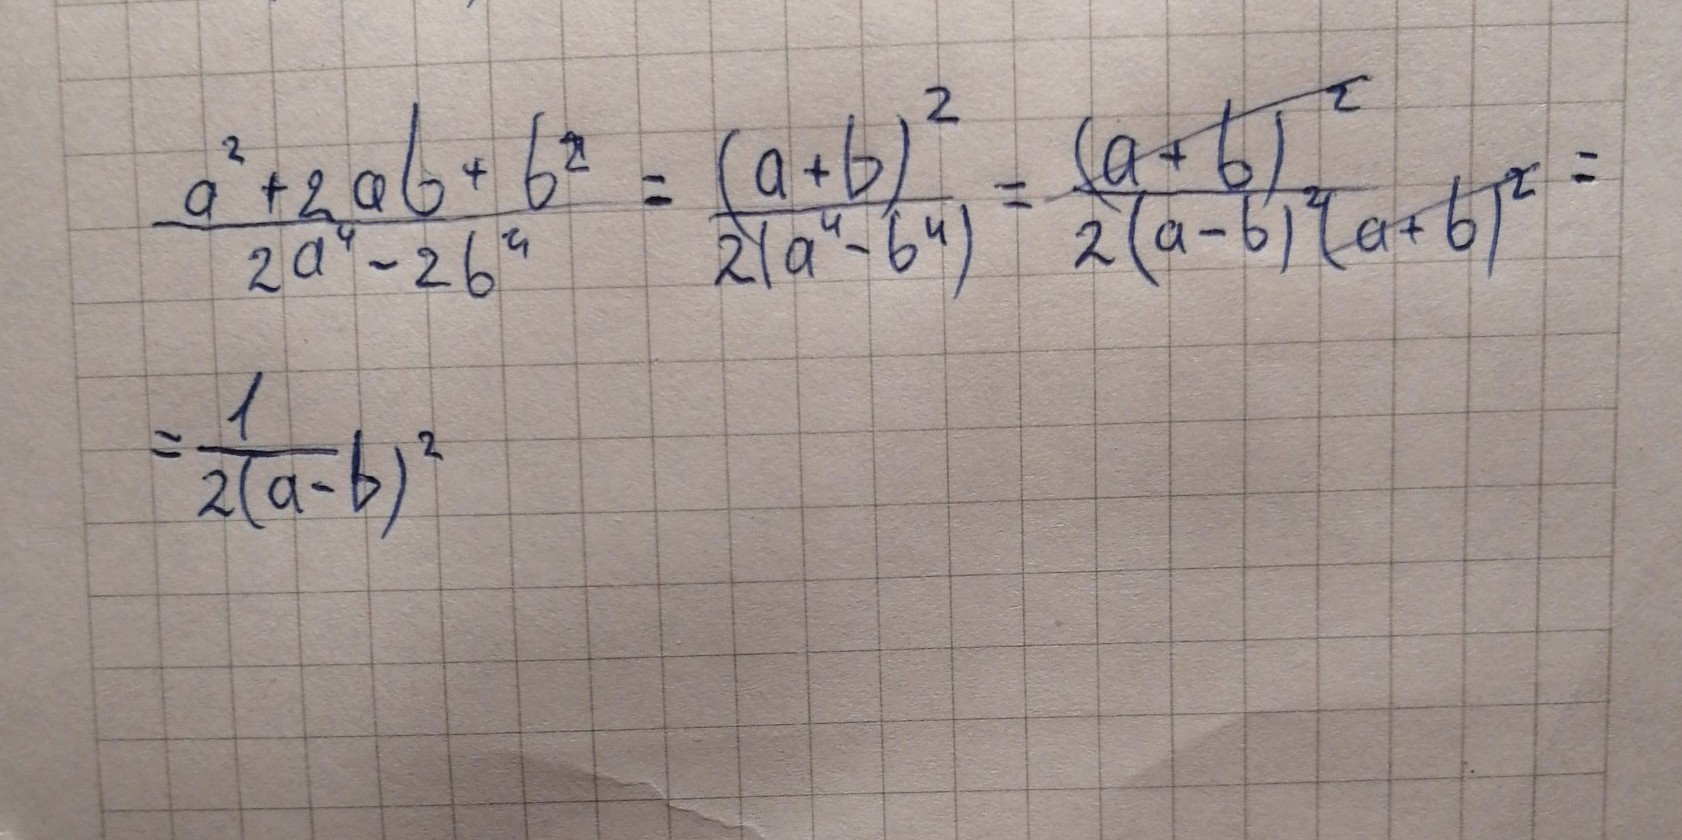 (a² + 2ab + b²)/(2a⁴ - 2b⁴) = (a + b)²/(2(a⁴ - b⁴)) = (a + b)²/(2(a - b)²(a + b)²) =
= 1/(2(a - b)²)